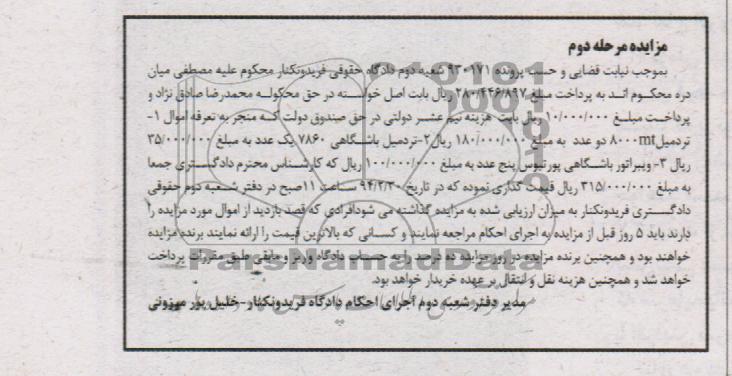 مزایده مرحله دوم
بموجب نیابت قضایی و حسب پرونده ۹۳۰۱۷۱ شعبه دوم دادگاه حقوقی فریدونکنار محکوم علیه مصطفی میان
دره محکوم اند به پرداخت مبلغ ۲۸۰/۴۴۶/۸۹۷ ریال بابت اصل خواسته در حق محکوله محمدرضا صادق نژاد و
پرداخت مبلغ ۱۰/۰۰۰/۰۰۰ ریال بابت هزینه نیم عشر دولتی در حق صندوق دولت که منجر به تعرفه اموال ۱-
تردمیل ۸۰۰۰mt دو عدد به مبلغ ۱۸۰/۰۰۰/۰۰۰ ریال ۲-تردمیل باشگاهی ۷۸۶۰ یک عدد به مبلغ ۳۵/۰۰۰/۰۰۰
ریال ۳- ویبراتور باشگاهی پورتیوس پنج عدد به مبلغ ۱۰۰/۰۰۰/۰۰۰ ریال که کارشناس محترم دادگستری جمعا
به مبلغ ۳۱۵/۰۰۰/۰۰۰ ریال قیمت گذاری نموده که در تاریخ ۹۴/۲/۳۰ ساعت ۱۱صبح در دفتر شعبه دوم حقوقی
دادگستری فریدونکنار به میزان ارزیابی شده به مزایده گذاشته می شودافرادی که قصد بازدید از اموال مورد مزایده را
دارند باید ۵ روز قبل از مزایده به اجرای احکام مراجعه نمایند و کسانی که بالاترین قیمت را ارائه نمایند برنده مزایده
خواهند بود و همچنین برنده مزایده در روز مزایده ده درصد را به حساب دادگاه واریز و مابقی طبق مقررات پرداخت
خواهد شد و همچنین هزینه نقل و انتقال بر عهده خریدار خواهد بود.
مدیر دفتر شعبه دوم اجرای احکام دادگاه فریدونکنار-خلیل پور میزونی
ParsNamadData